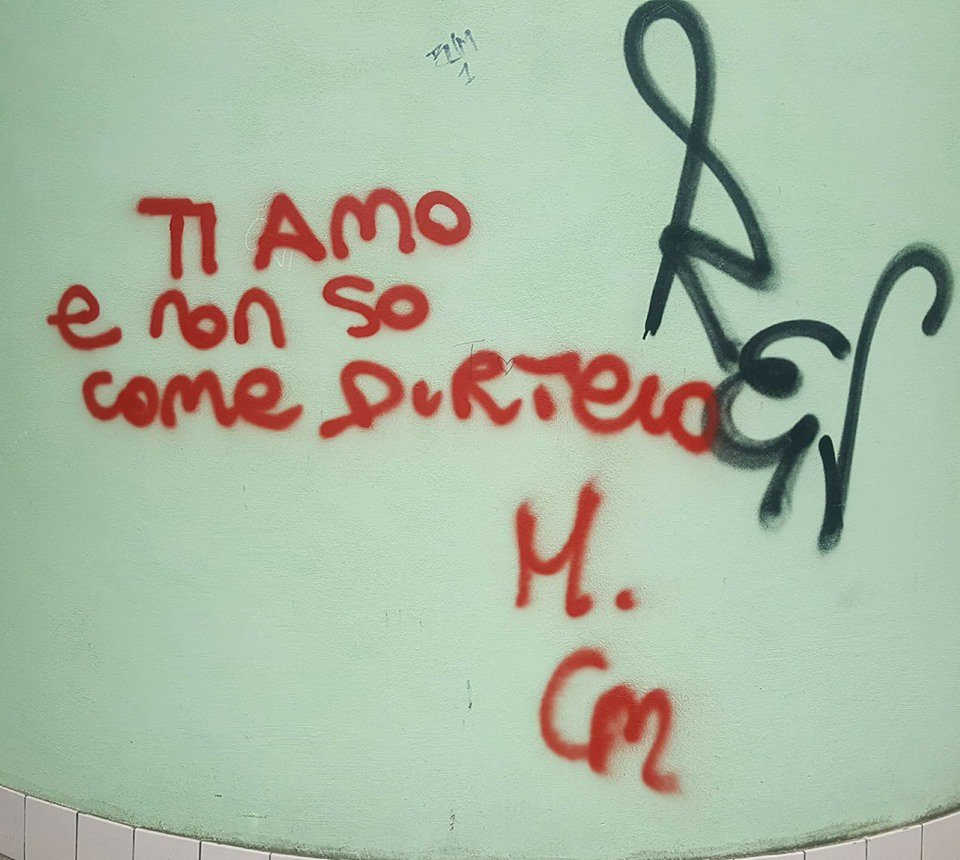 TI AMO
e non so
come DiRTelo
M.
Cm